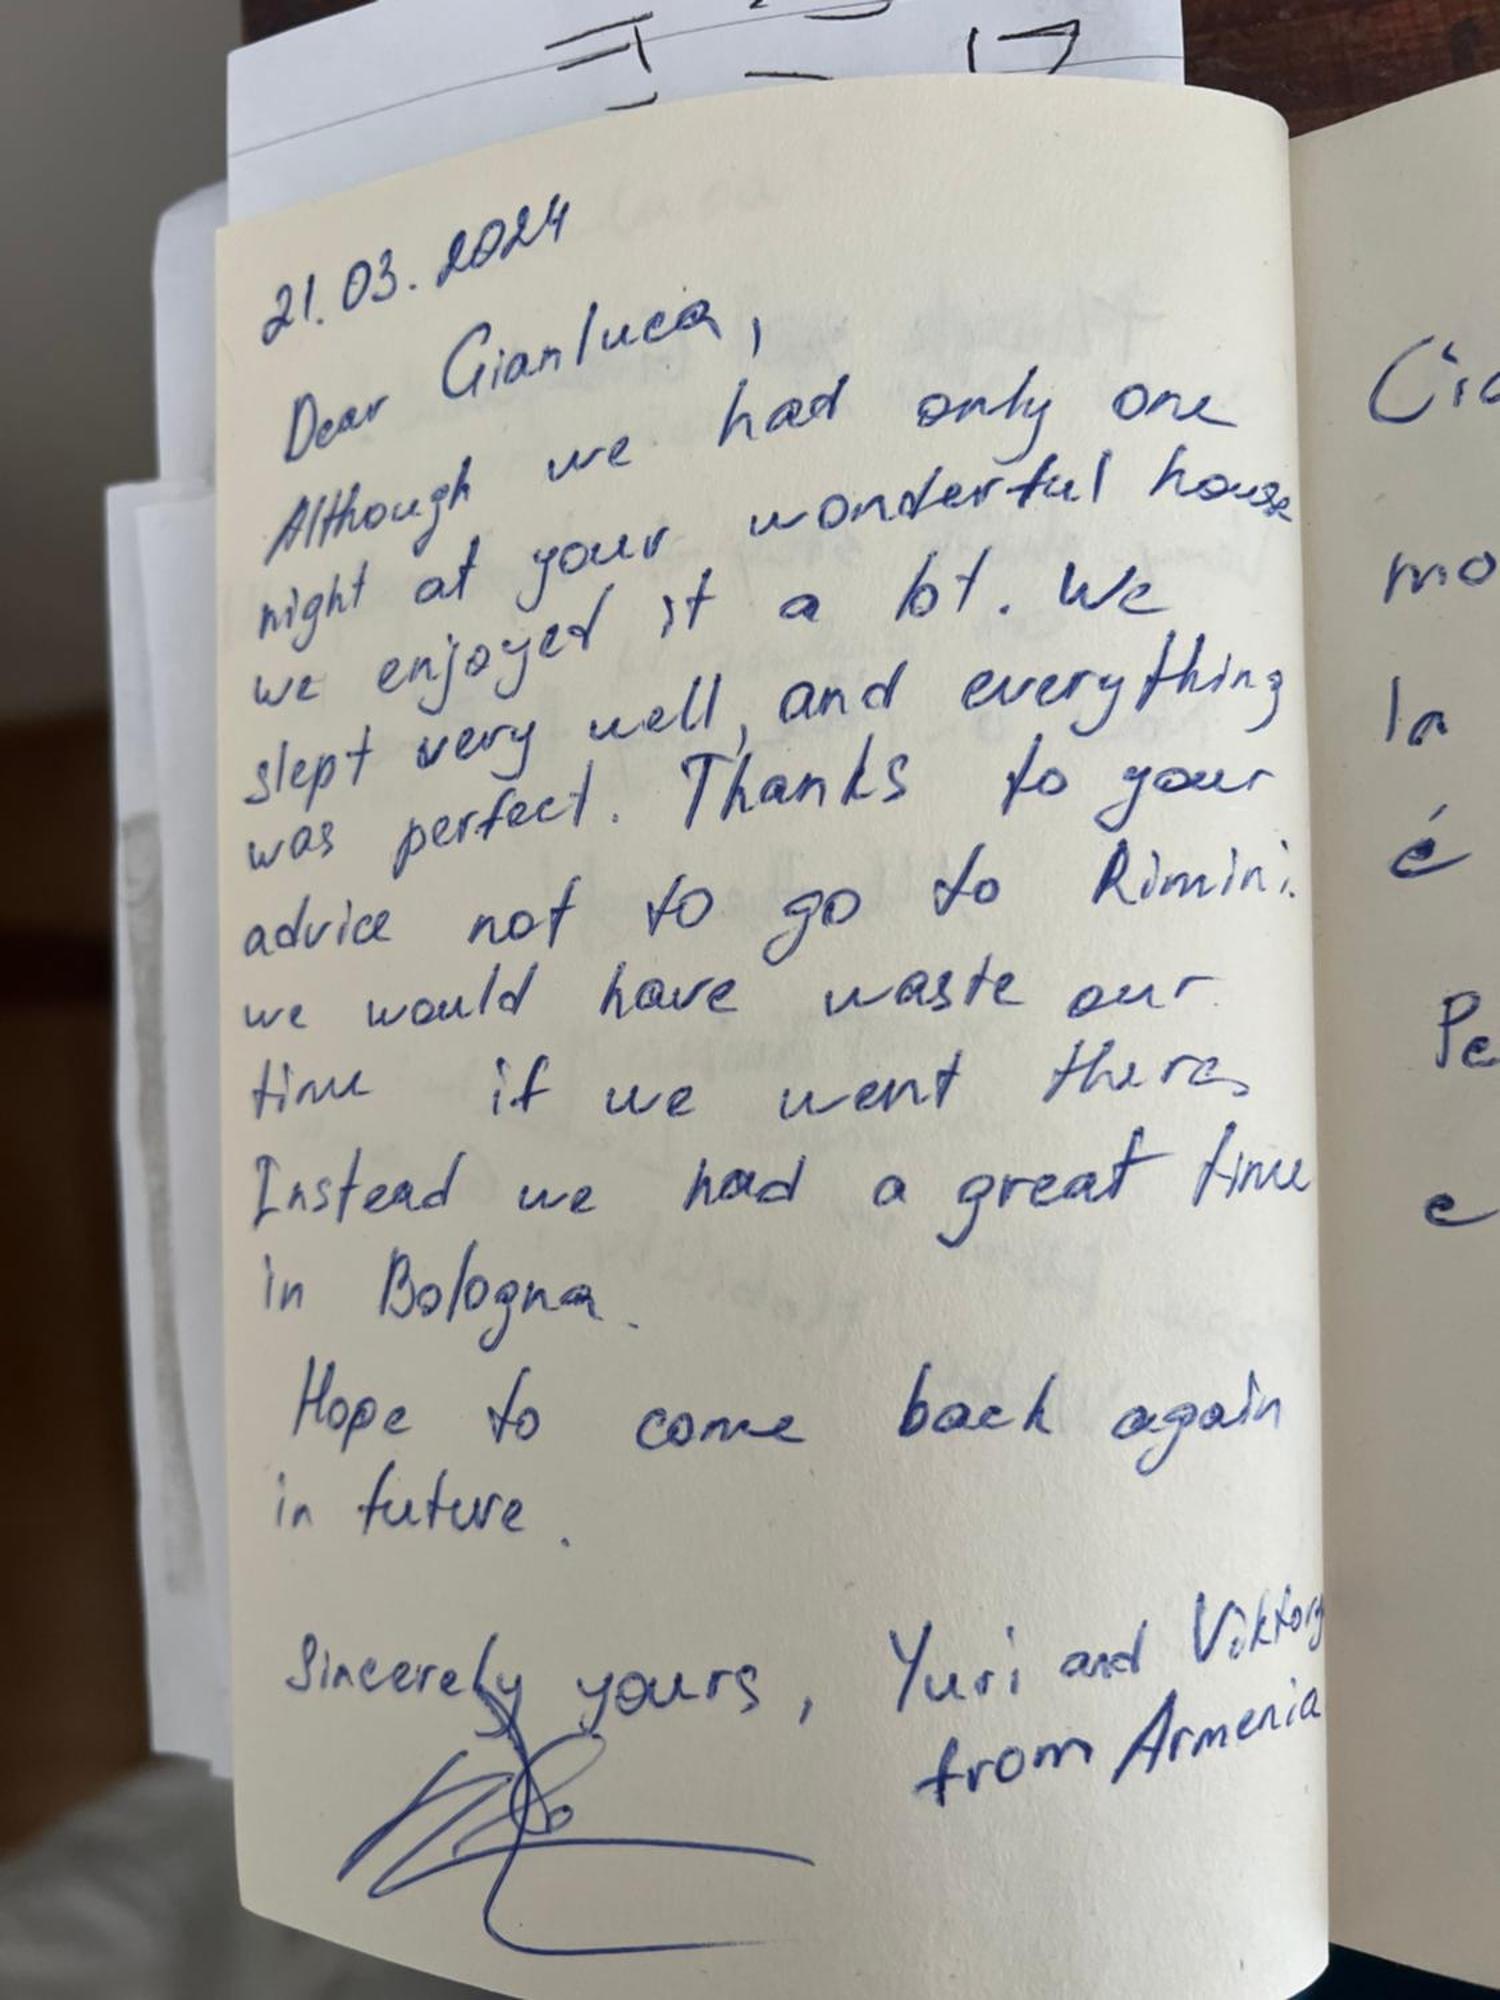 21.03.2024
Dear Gianluca,
Although we had only one
night at your wonderful house
we enjoyed it a lot. We
slept very well, and everything
was perfect. Thanks to your
advice not to go to Rimini.
we would have waste our
time if we went there,
Instead we had a great time
in Bologna.
Hope to come back again
in future.
Sincerely yours, Yuri and
from Armenia
mo
la
é
Pe
e